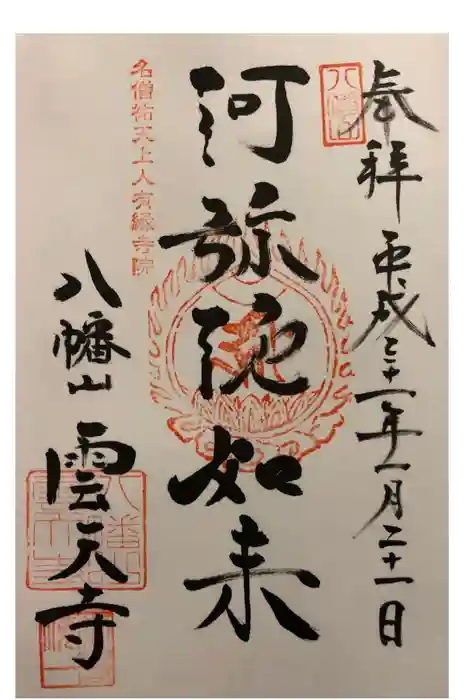 奉拝 平成三十一年一月二十一日
八幡山
阿弥陀如来
名僧祐天上人有縁寺院
八幡山 雲天寺